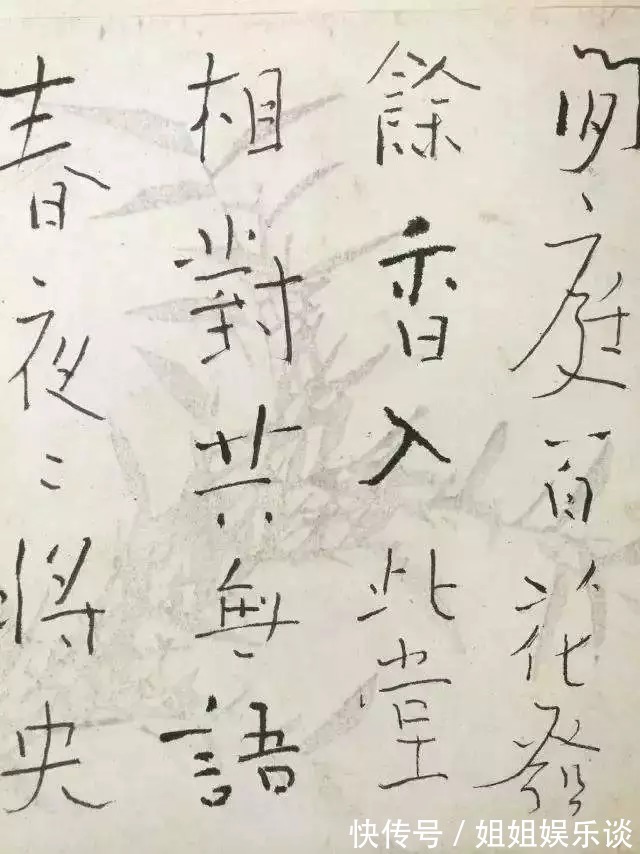 閒庭百花發
餘香入此堂
相對共無語
春夜〻將央
快传号 / 姐姐娱乐谈